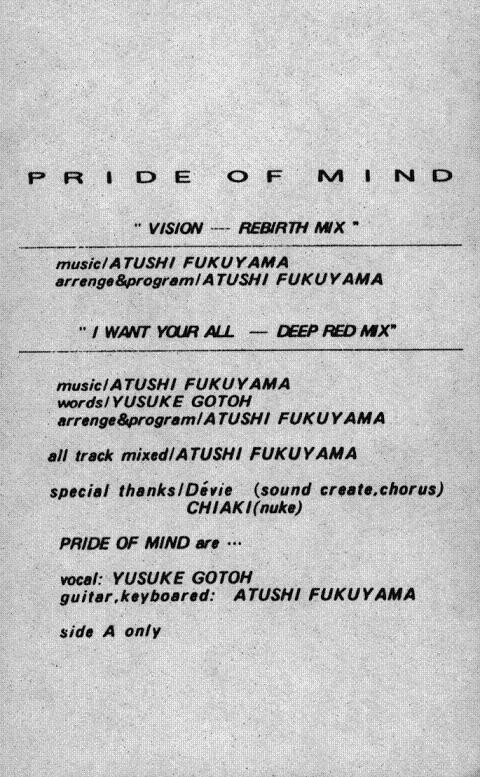 PRIDE OF MIND
" VISION ---- REBIRTH MIX "
music/ATUSHI FUKUYAMA
arrenge&program/ATUSHI FUKUYAMA
" I WANT YOUR ALL — DEEP RED MIX"
music/ATUSHI FUKUYAMA
words/YUSUKE GOTOH
arrenge&program/ATUSHI FUKUYAMA
all track mixed/ATUSHI FUKUYAMA
special thanks/Dévie (sound create,chorus)
CHIAKI(nuke)
PRIDE OF MIND are ···
vocal: YUSUKE GOTOH
guitar,keyboared: ATUSHI FUKUYAMA
side A only